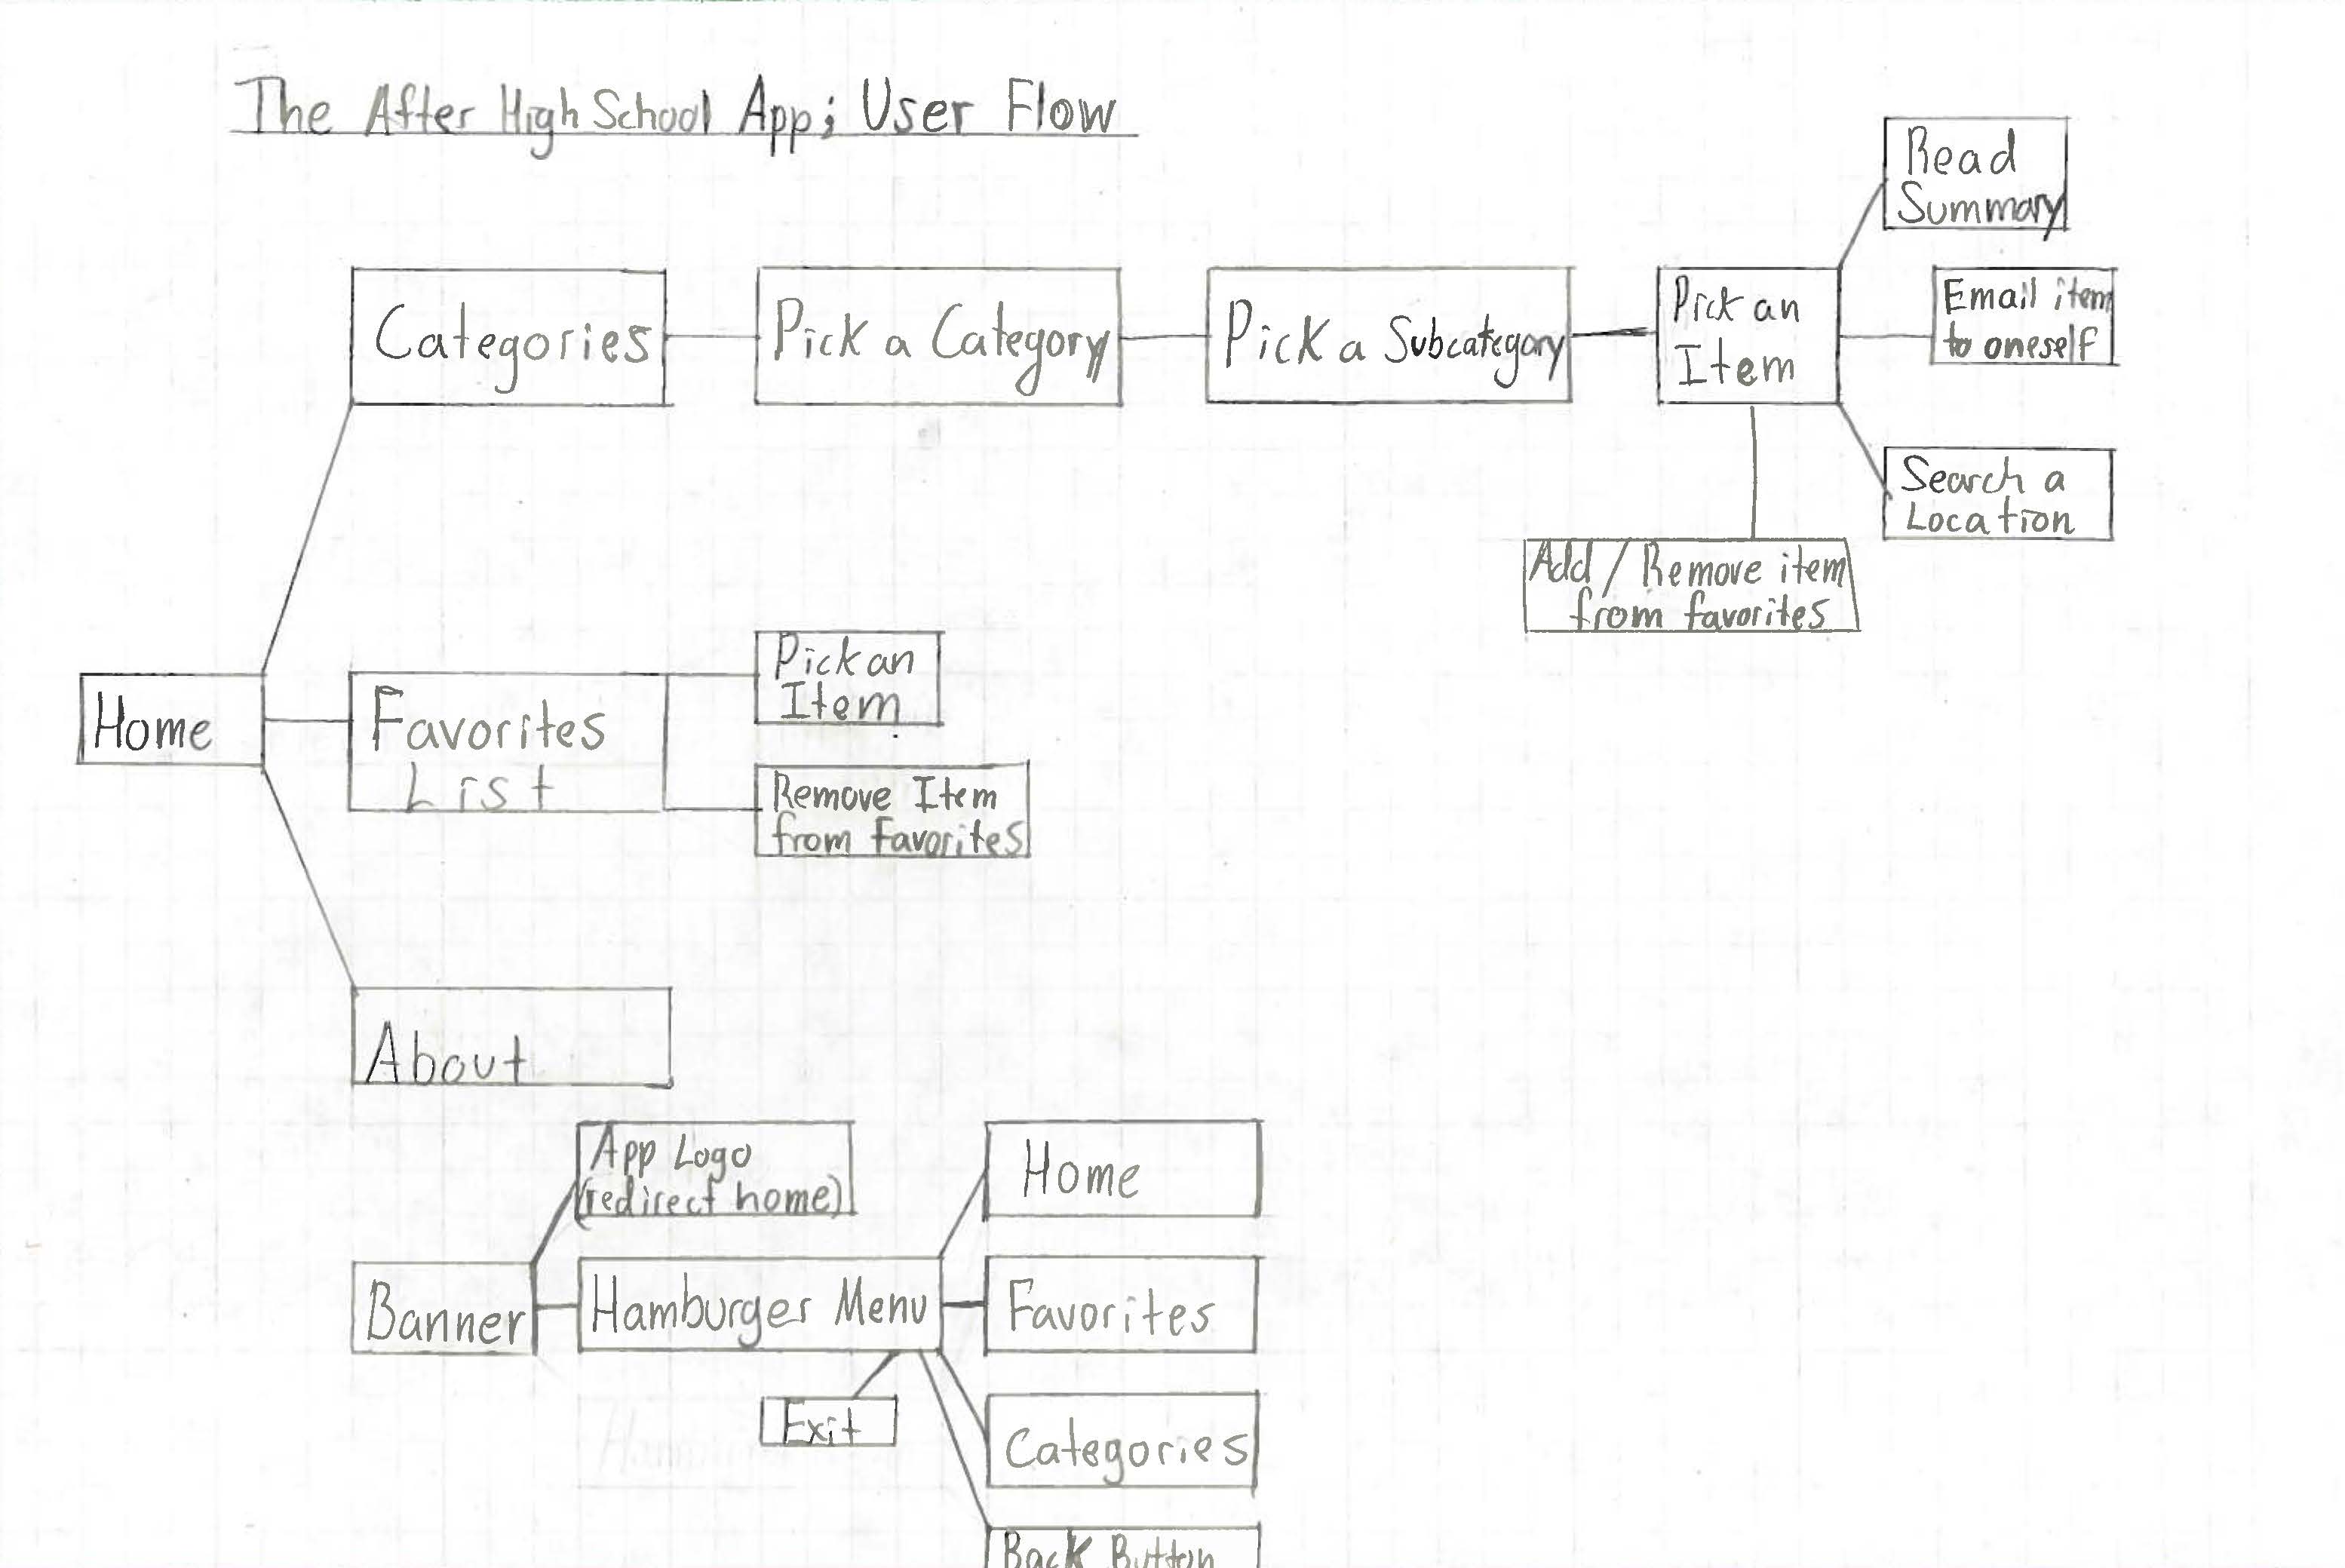 The After High School App; User Flow
Read
Summary
Categories
Pick a Category
Pick a Subcategory
Pick an
Item
Email item
to oneself
Search a
Location
Add / Remove item
from favorites
Home
Favorites
List
Pick an
Item
Remove Item
from Favorites
About
App Logo
(redirect home)
Home
Banner
Hamburger Menu
Favorites
Exit
Categories
Back Button